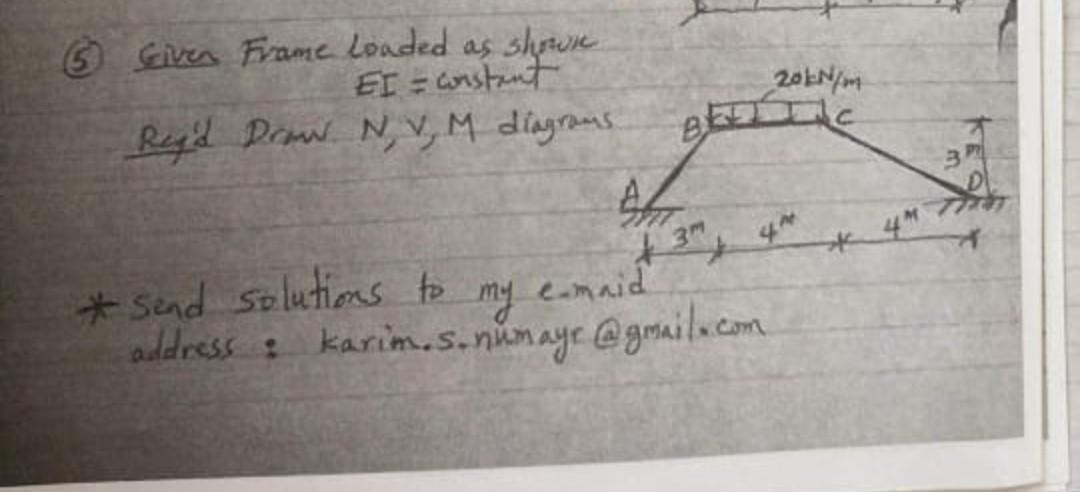 ⑤ Given Frame Loaded as shown
EI = constant
Req'd Draw N, V, M diagrams
20kN/m
B
C
A
D
3m
3m
4m
4m
* Send solutions to my e-maid
address : karim.s.numayr@gmail.com